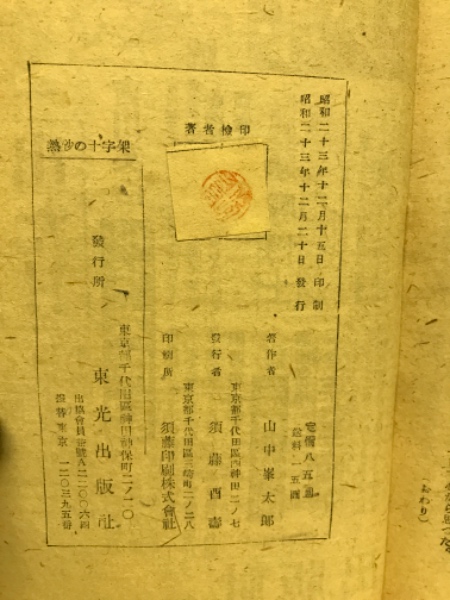 昭和二十三年十二月十五日 印刷
昭和二十三年十二月二十日 發行
定價八五圓
送料一五圓
著者檢印
著作者 山中峯太郎
東京都千代田區西神田二ノ七
發行者 須藤酉壽
東京都千代田區三崎町二ノ二八
印刷所 須藤印刷株式會社
熱沙の十字架
發行所
東京都千代田區神田神保町二ノ一〇
東光出版社
振替東京 一二〇三九五番
(おわり)